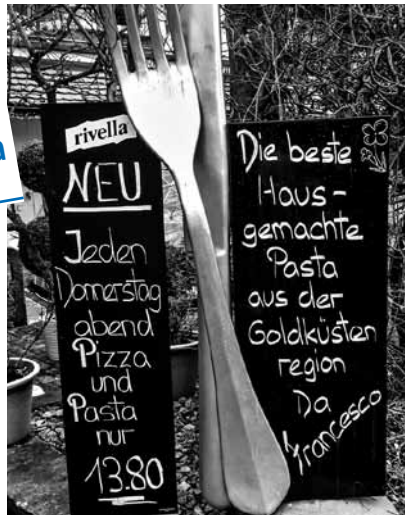 rivella
NEU
Jeden
Donnerstag
abend
Pizza
und
Pasta
nur
13.80
Die beste
Haus-
gemachte
Pasta
aus der
Goldküsten
region
Da
Francesco